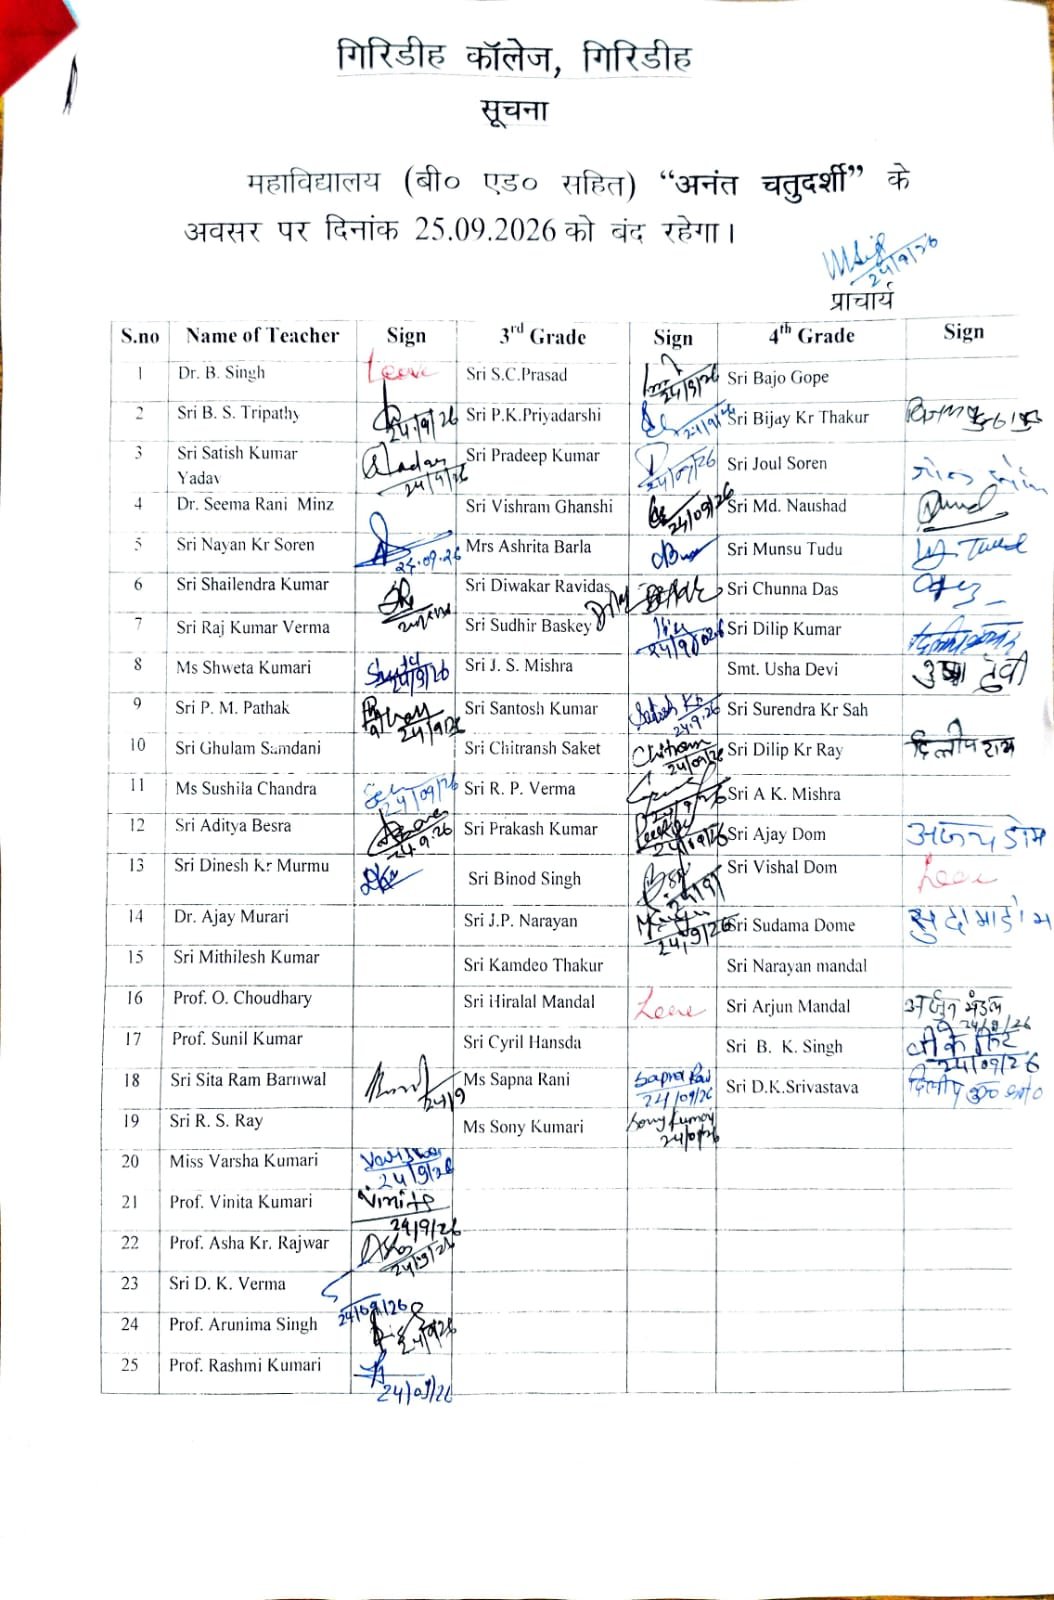 गिरिडीह कॉलेज, गिरिडीह
सूचना
महाविद्यालय (बी० एड० सहित) “अनंत चतुदर्शी” के
अवसर पर दिनांक 25.09.2026 को बंद रहेगा।
24/9/26
प्राचार्य
S.no Name of Teacher Sign 3rd Grade Sign 4th Grade Sign
1 Dr. B. Singh Leave Sri S.C.Prasad 24/9/26 Sri Bajo Gope
2 Sri B. S. Tripathy 24/9/26 Sri P.K.Priyadarshi 24/9/26 Sri Bijay Kr Thakur
3 Sri Satish Kumar Yadav 24/9/26 Sri Pradeep Kumar 24/09/26 Sri Joul Soren
4 Dr. Seema Rani Minz Sri Vishram Ghanshi 24/09/26 Sri Md. Naushad
5 Sri Nayan Kr Soren 24.09.26 Mrs Ashrita Barla Sri Munsu Tudu
6 Sri Shailendra Kumar Sri Diwakar Ravidas Sri Chunna Das
7 Sri Raj Kumar Verma Sri Sudhir Baskey Sri Dilip Kumar
8 Ms Shweta Kumari Sri J. S. Mishra Smt. Usha Devi उषा देवी
9 Sri P. M. Pathak 24/9/26 Sri Santosh Kumar 24.9.26 Sri Surendra Kr Sah
10 Sri Ghulam Samdani Sri Chitransh Saket 24/09/26 Sri Dilip Kr Ray दिलीप राय
11 Ms Sushila Chandra 24/09/26 Sri R. P. Verma Sri A K. Mishra
12 Sri Aditya Besra 24.9.26 Sri Prakash Kumar 24/09/26 Sri Ajay Dom अजय डोम
13 Sri Dinesh Kr Murmu Sri Binod Singh 24/9/ Sri Vishal Dom Leave
14 Dr. Ajay Murari Sri J.P. Narayan 24/9/26 Sri Sudama Dome सुदामा डोम
15 Sri Mithilesh Kumar Sri Kamdeo Thakur Sri Narayan mandal
16 Prof. O. Choudhary Sri Hiralal Mandal Leave Sri Arjun Mandal अर्जुन मंडल 24/9/26
17 Prof. Sunil Kumar Sri Cyril Hansda Sri B. K. Singh 24/09/26
18 Sri Sita Ram Barnwal 24/9 Ms Sapna Rani Sapna Rani 24/09/26 Sri D.K.Srivastava
19 Sri R. S. Ray Ms Sony Kumari Sony Kumari
20 Miss Varsha Kumari 24/9/26
21 Prof. Vinita Kumari Vinita 24/9/26
22 Prof. Asha Kr. Rajwar 24/09/26
23 Sri D. K. Verma 24/09/26
24 Prof. Arunima Singh 24/9/26
25 Prof. Rashmi Kumari 24/09/26